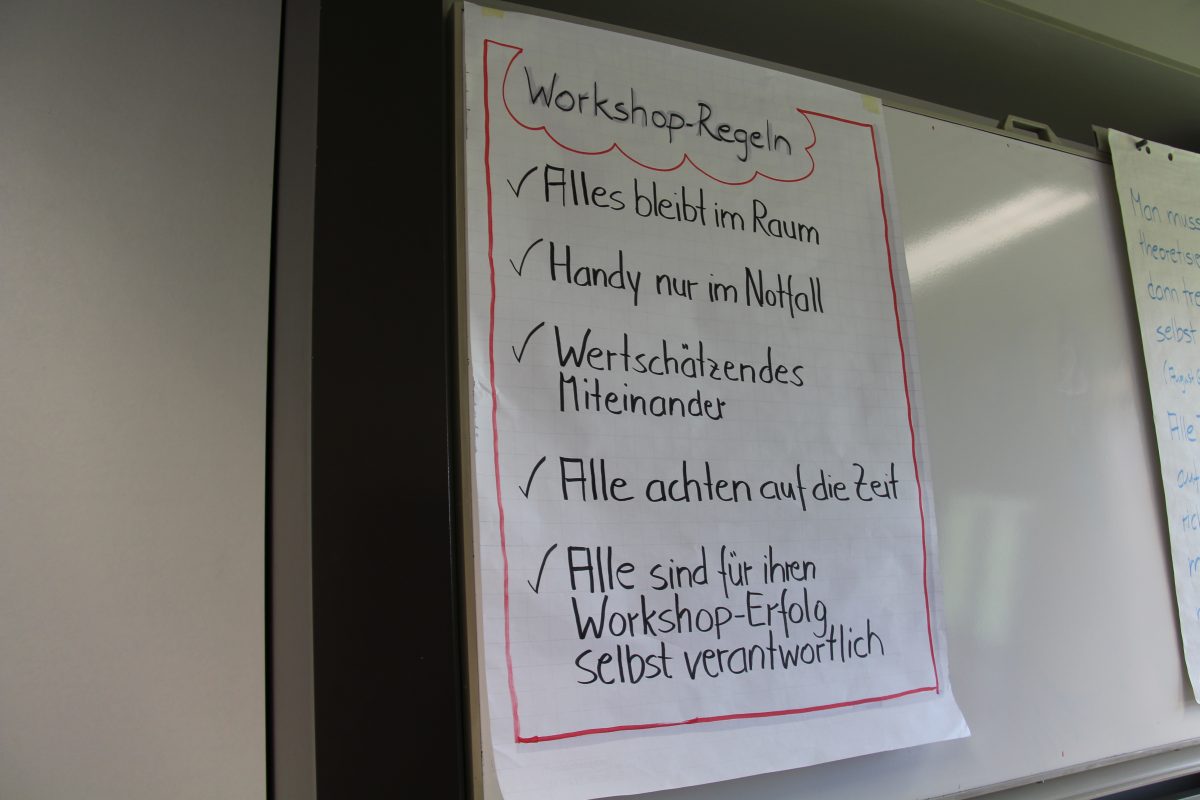 Workshop-Regeln
✓ Alles bleibt im Raum
✓ Handy nur im Notfall
✓ Wertschätzendes
Miteinander
✓ Alle achten auf die Zeit
✓ Alle sind für ihren
Workshop-Erfolg
selbst verantwortlich
Man muss
selbst
Alle